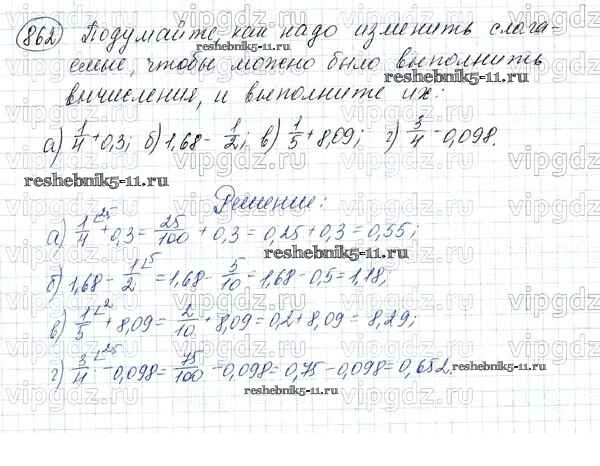 862 Подумайте, как надо изменить слага-
емые, чтобы можно было выполнить
вычисления, и выполните их:
а) 1/4 + 0,3; б) 1,68 - 1/2; в) 1/5 + 8,09; г) 3/4 - 0,098.
Решение:
а) 1/4 ∟25 + 0,3 = 25/100 + 0,3 = 0,25 + 0,3 = 0,55;
б) 1,68 - 1/2 ∟5 = 1,68 - 5/10 = 1,68 - 0,5 = 1,18;
в) 1/5 ∟2 + 8,09 = 2/10 + 8,09 = 0,2 + 8,09 = 8,29;
г) 3/4 ∟25 - 0,098 = 75/100 - 0,098 = 0,75 - 0,098 = 0,652.
reshebnik5-11.ru
reshebnik5-11.ru
reshebnik5-11.ru
reshebnik5-11.ru
reshebnik5-11.ru
vipgdz.ru